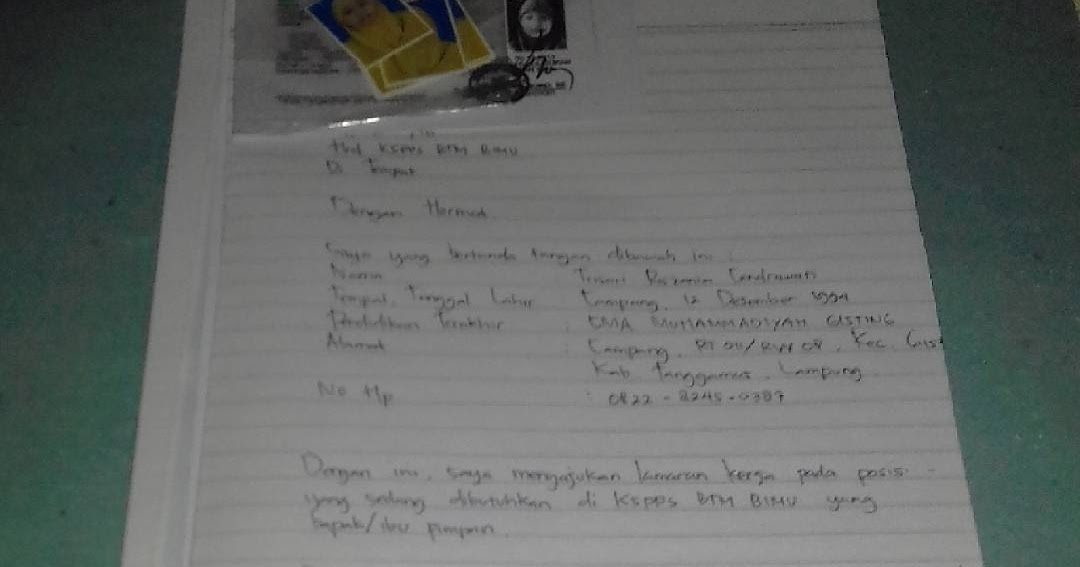 Hrd KSPPS BTM BIMU
Di Tempat
Dengan Hormat
Saya yang bertanda tangan dibawah ini :
Nama
Tempat, Tanggal Lahir Lampung, 12 Desember 1994
Pendidikan Terakhir : SMA MUHAMMADIYAH GISTING
Alamat : Campang, RT 04/RW 08, Kec. Gis
Kab. Tanggamus, Lampung
No Hp : 0822-8245-0387
Dengan ini, saya mengajukan lamaran kerja pada posisi -
yang sedang dibutuhkan di KSPPS BTM BIMU yang
bapak/ibu pimpin.